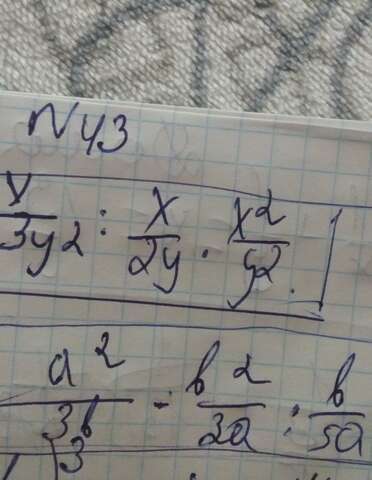 N43
x/3y² : x/2y · x²/y².
a²/3b · b²/3a : b/5a
3